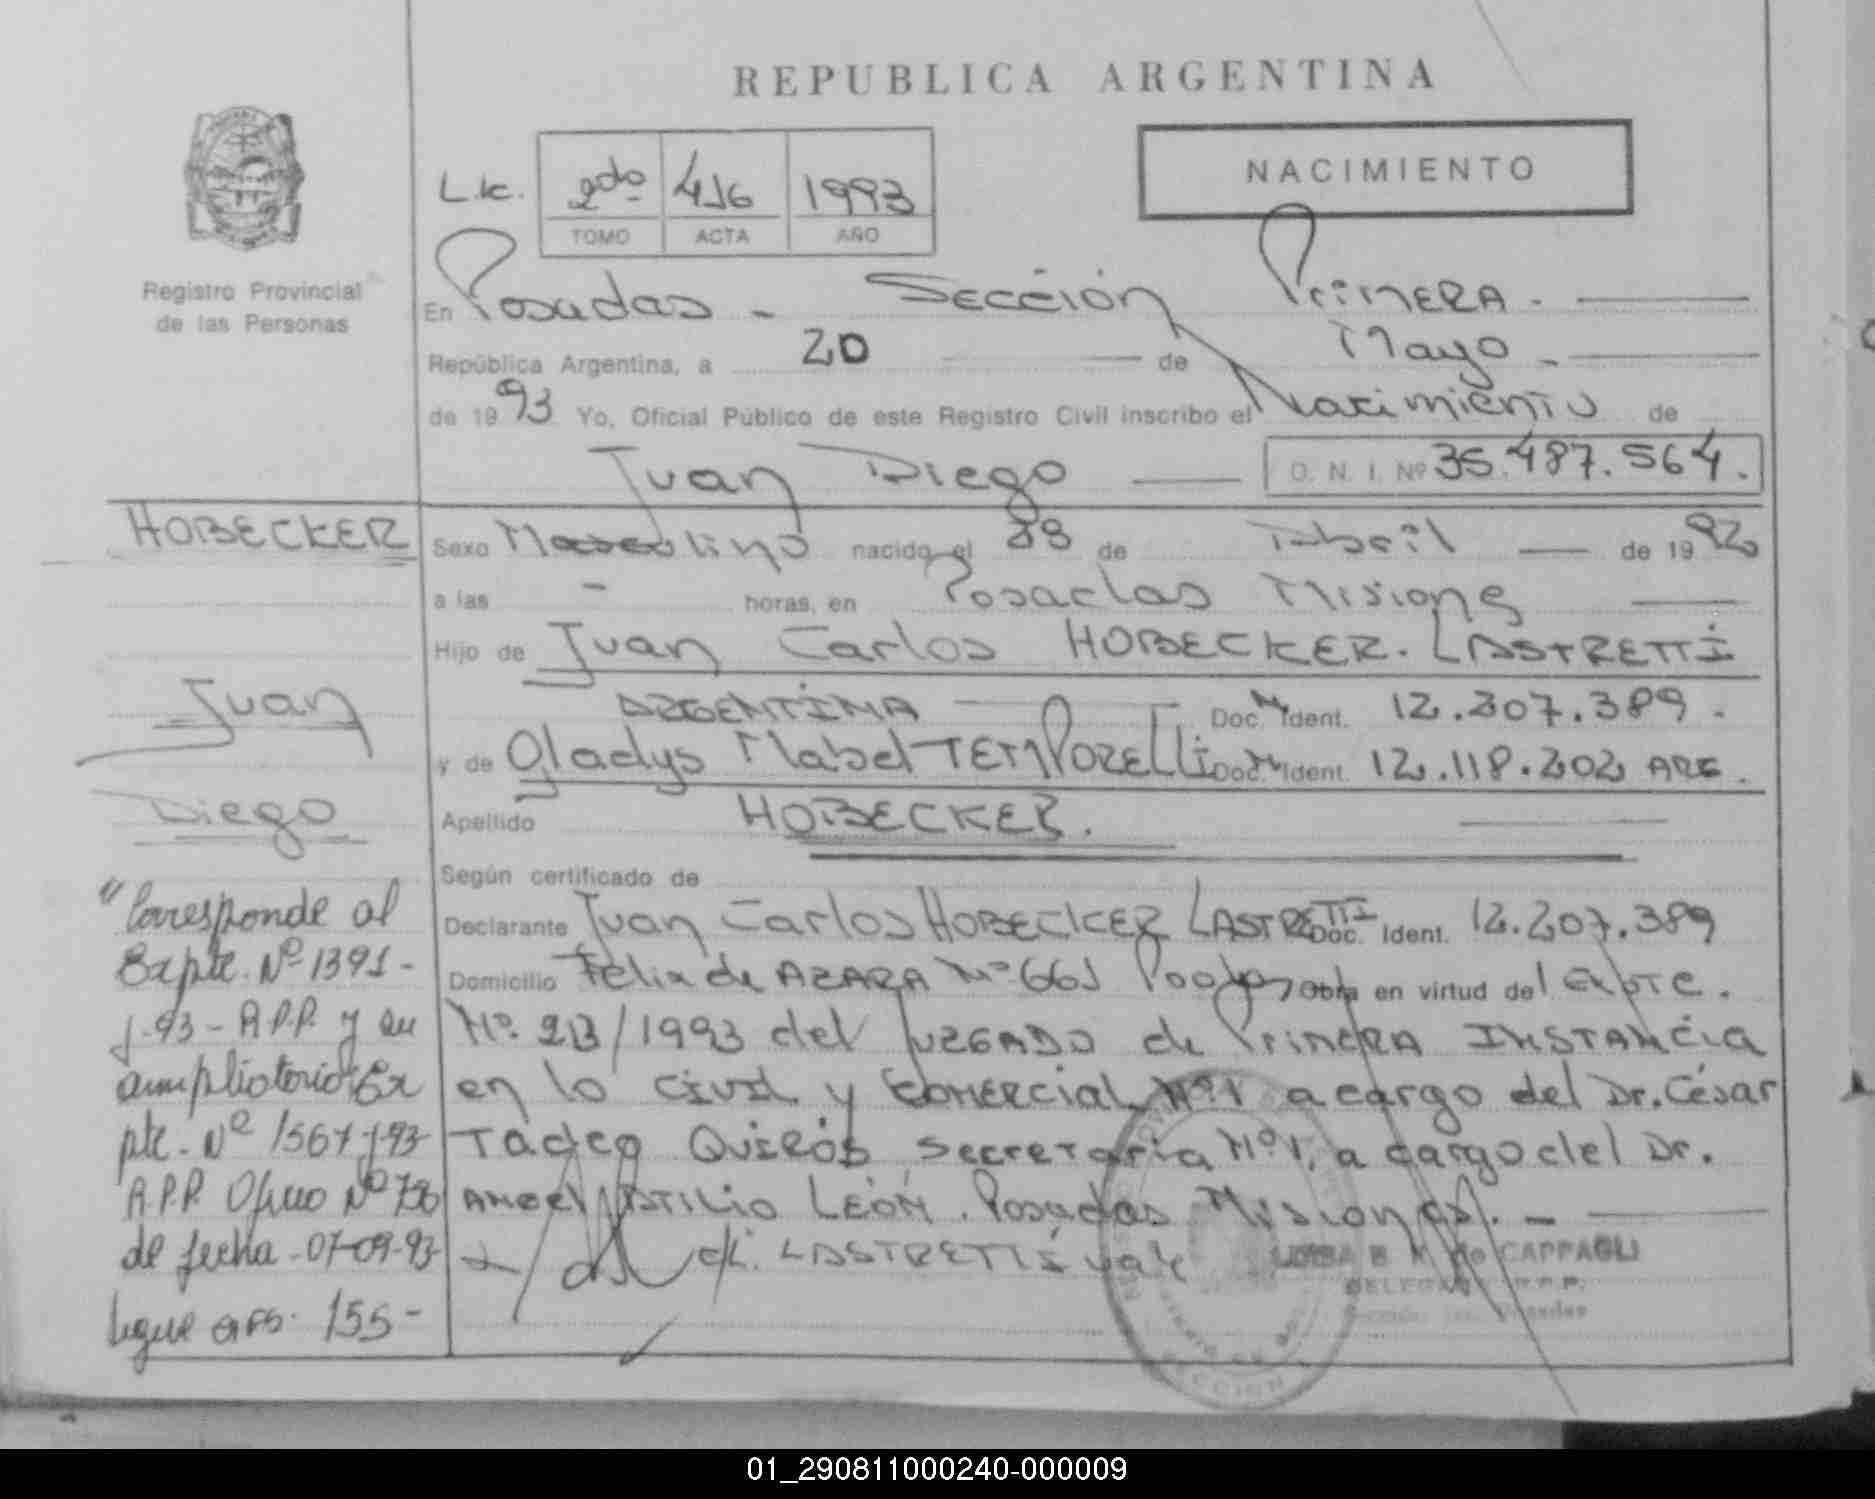 REPUBLICA ARGENTINA
NACIMIENTO
L.ic. 2do 416 1993
TOMO ACTA AÑO
Registro Provincial
de las Personas
En Posadas - Sección Primera. -
República Argentina, a 20 de Mayo -
de 1993 Yo, Oficial Público de este Registro Civil inscribo el Nacimiento de
Juan Diego D. N. I. Nº 35.487.564.
HOBECKER
Sexo Masculino nacido el de Abril de 1992
a las - horas, en Posadas Misiones
Hijo de Juan Carlos HOBECKER. LASTRETTI
ARGENTINA Doc. Ident. 12.207.389.
y de Gladys Mabel TEMPORELLI Doc. Ident. 12.118.202 ARG.
Apellido HOBECKER.
Según certificado de
Declarante Juan Carlos HOBECKER LASTRETTI Doc. Ident. 12.207.389
Domicilio Felix de AZARA Nº 661 Obra en virtud del Expte.
Nº. 213/1993 del Juzgado de Primera Instancia
en lo Civil y Comercial Nº1 a cargo del Dr. César
Tadeo Quirós Secretaria Nº1, a cargo del Dr.
Angel Atilio León. Posadas Misiones. -
LASTRETTI vale
LUISA B. M. de CAPPAGLI
DELEGADA R.P.P.
Sección 1ra. Posadas
Juan
Diego
"Corresponde al
Expte. Nº 1391-
j-93- R.P.P. y su
ampliatorio Ex
pte. Nº 1567-j-93
R.P.P. Oficio Nº 736
de fecha -07-09-93
155-
01_290811000240-000009